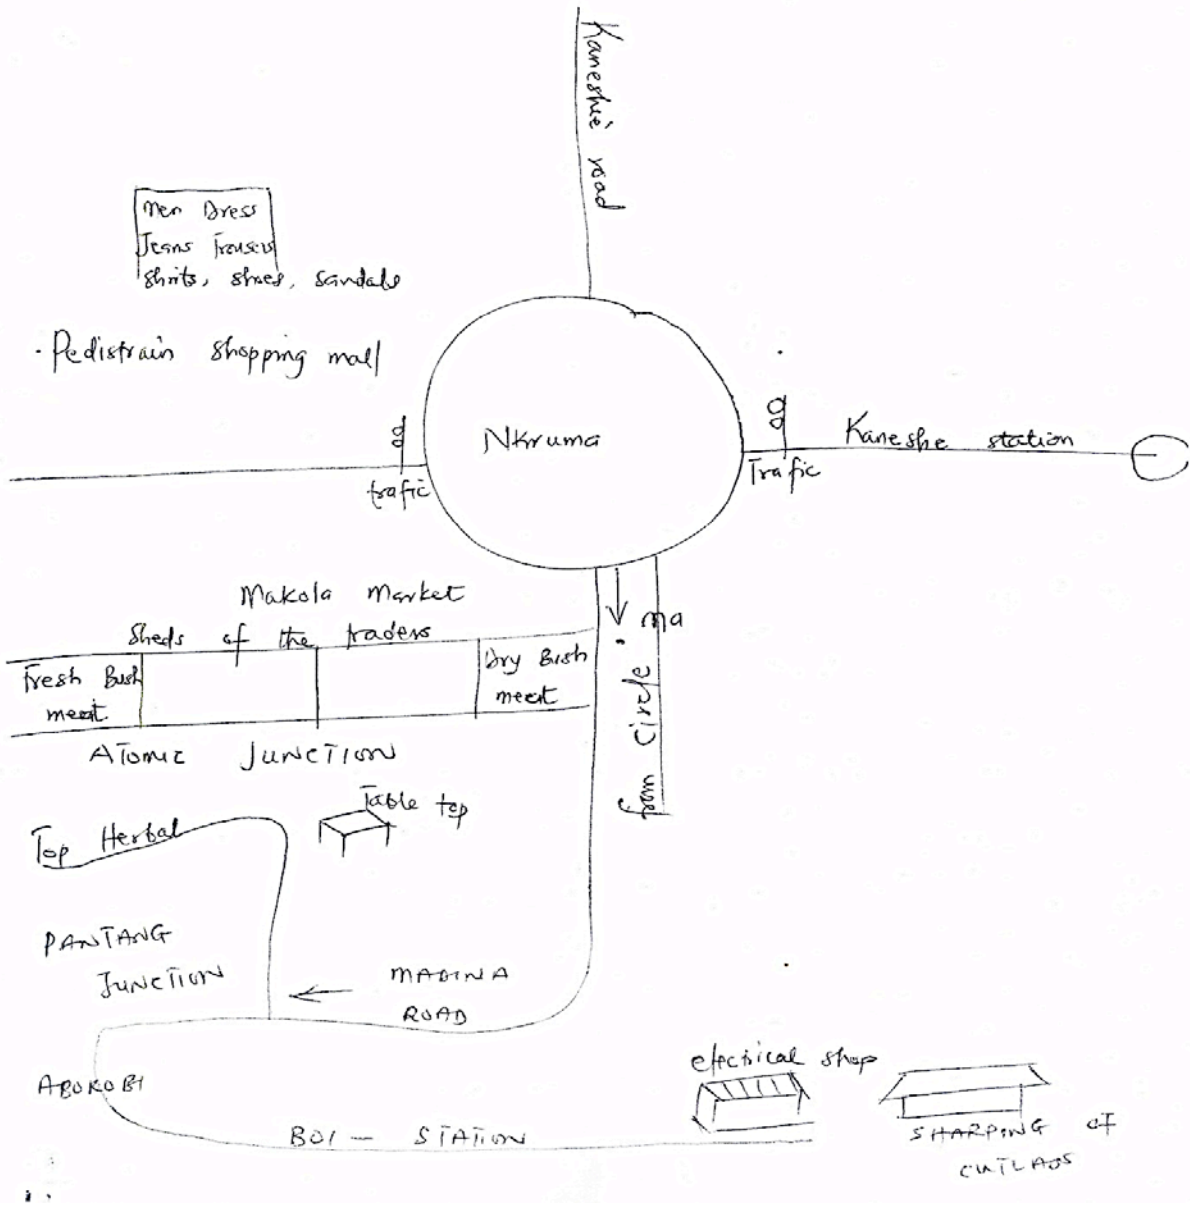 Kaneshie road
Men Dress
Jeans Trousers
Shrits, shoes, sandals
. Pedistrain shopping mall
Nkruma
Kaneshe station
trafic
Trafic
Makola Market
Sheds of the traders
Fresh Bush
meat
Dry Bush
meat
from Circle . ma
ATOMIC JUNCTION
Table top
Top Herbal
PANTANG
JUNCTION
MADINA
ROAD
ABOKOBI
electrical shop
BOI - STATION
SHARPING of
CUTLASS